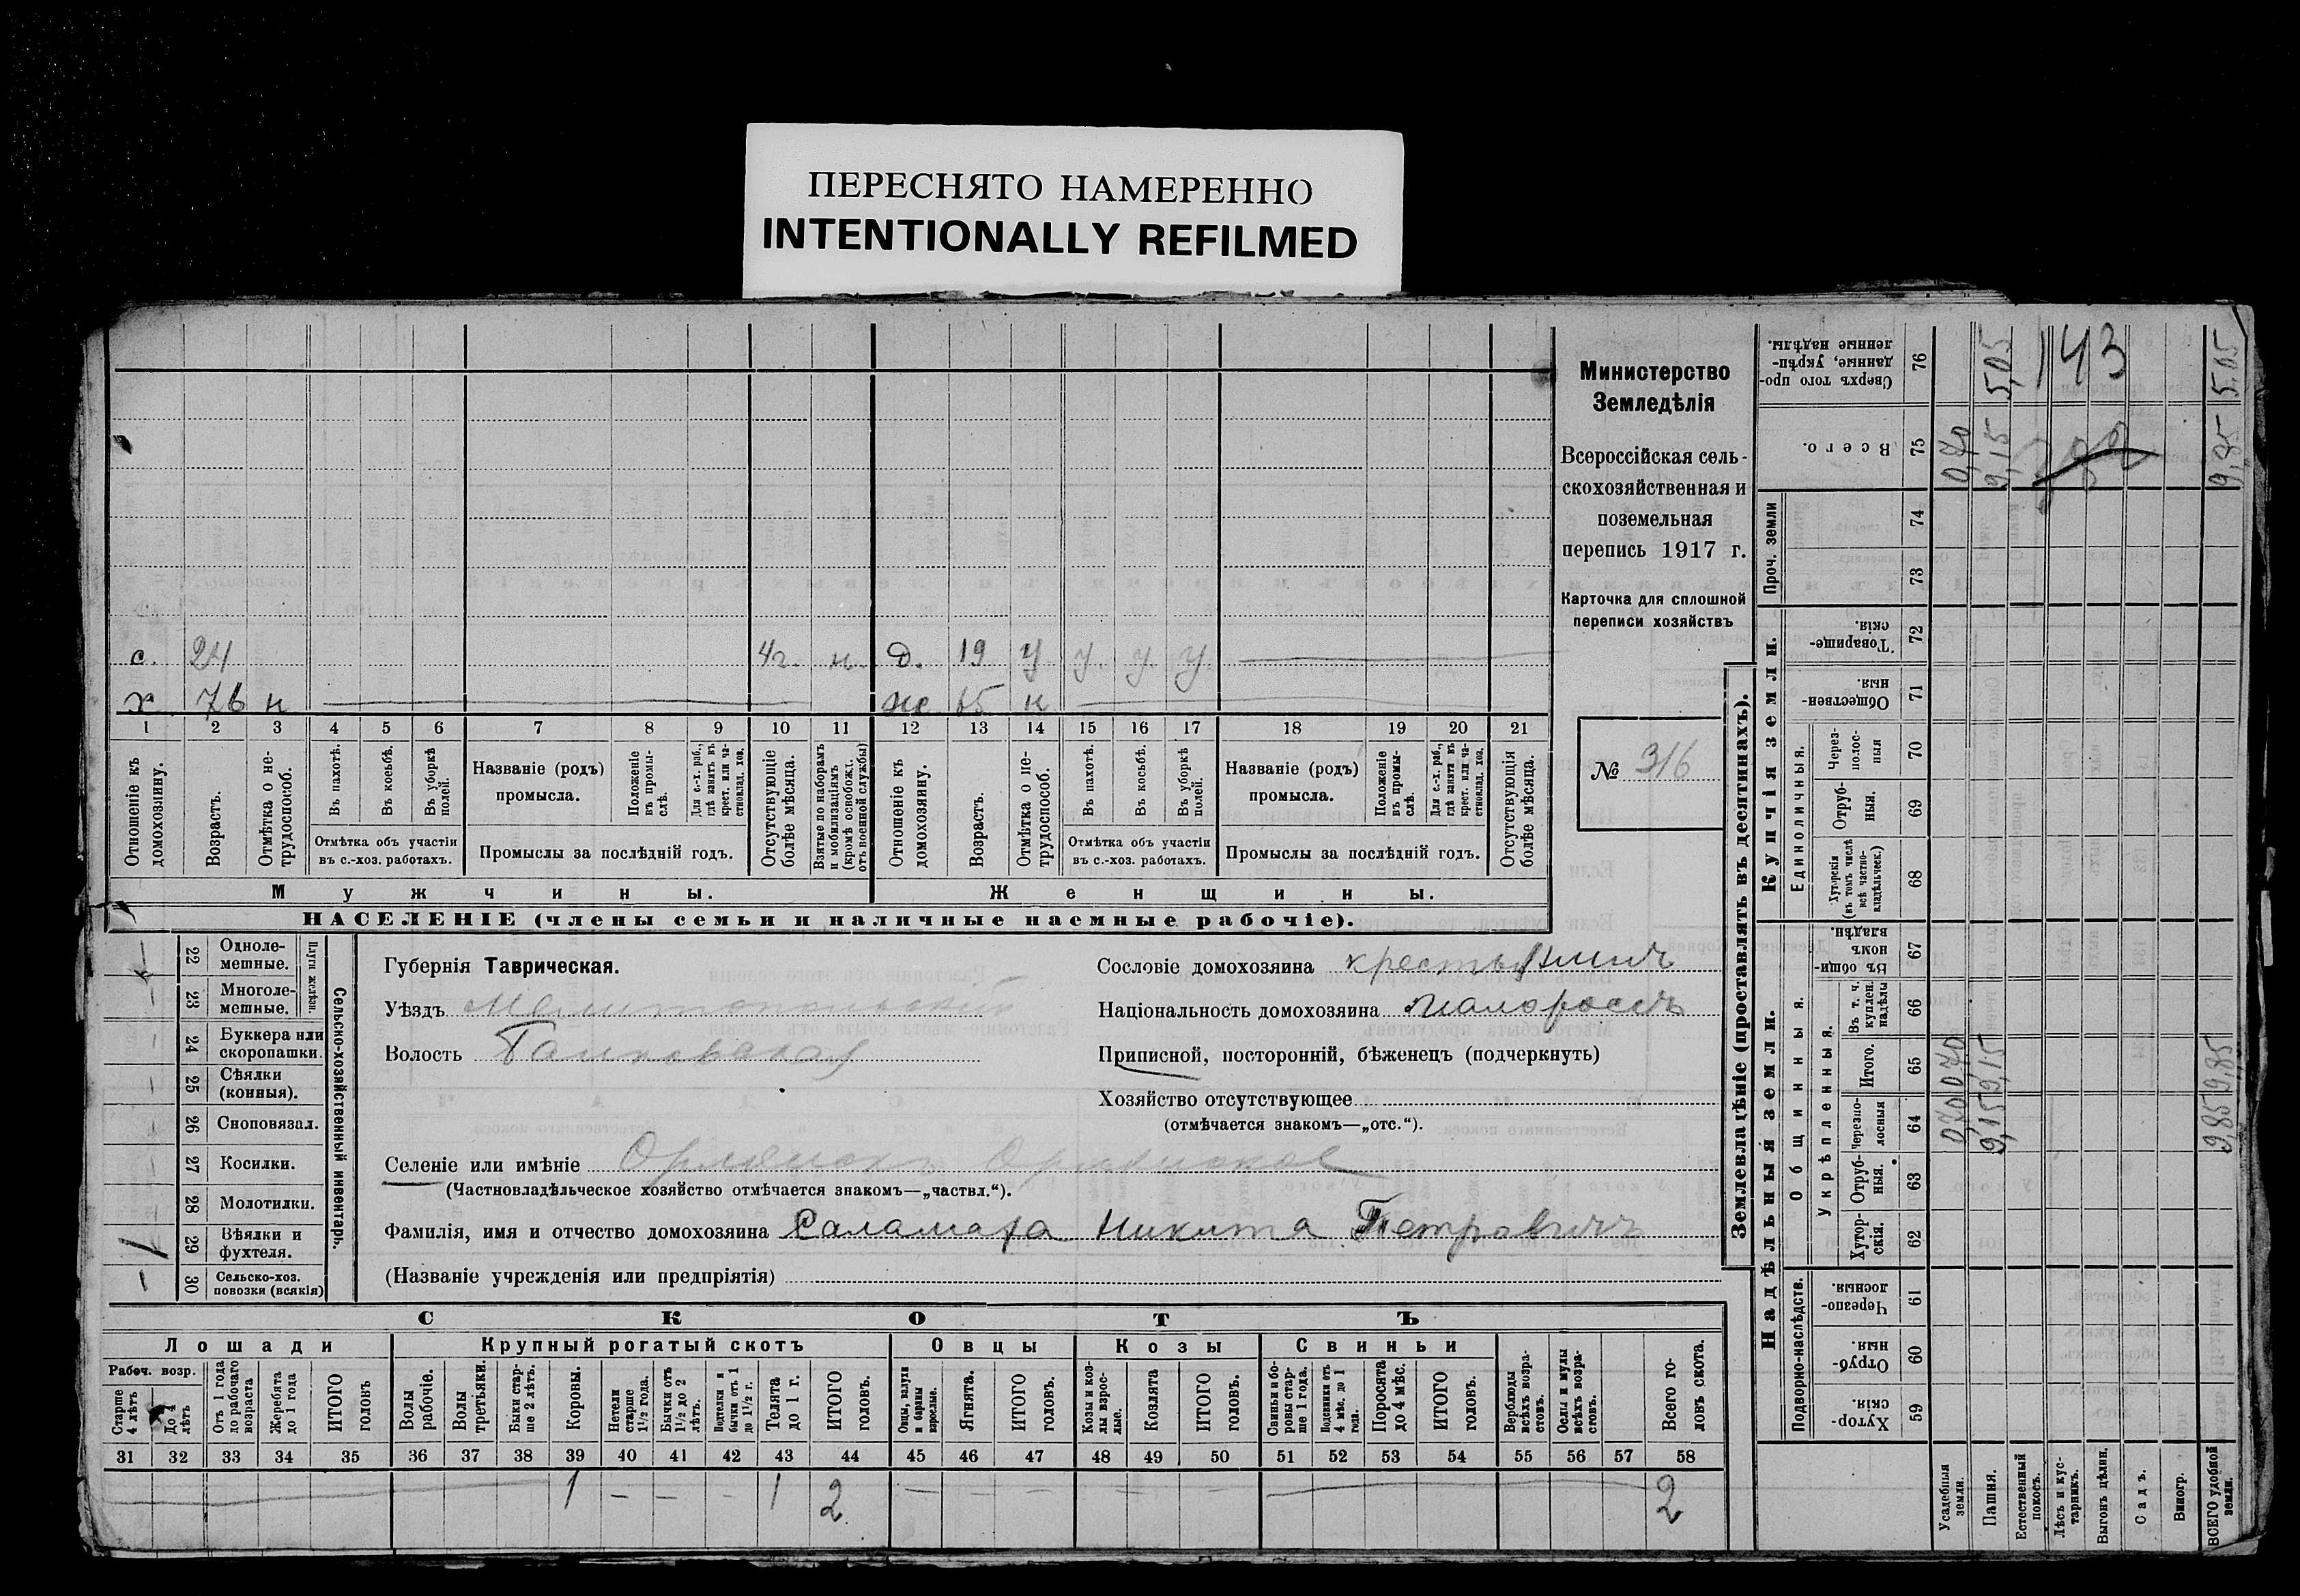 ПЕРЕСНЯТО НАМЕРЕННО
INTENTIONALLY REFILMED
с. 24 4г. н. д. 19 у у у у
х 76 н ж 65 н
1 2 3 4 5 6 7 8 9 10 11 12 13 14 15 16 17 18 19 20 21
Отношеніе къ домохозяину.
Возрастъ.
Отмѣтка о нетрудоспособ.
Въ пахотѣ.
Въ косьбѣ.
Въ уборкѣ полей.
Отмѣтка объ участіи
въ с.-хоз. работахъ.
Названіе (родъ)
промысла.
Положеніе въ промыслѣ.
Для с.-х. раб., гдѣ занятъ въ крест. или частновлад. хоз.
Промыслы за послѣдній годъ.
Отсутствующіе болѣе мѣсяца.
Взятые по наборамъ и мобилизаціямъ (кромѣ освобожд. отъ военной службы)
Отношеніе къ домохозяину.
Возрастъ.
Отмѣтка о нетрудоспособ.
Въ пахотѣ.
Въ косьбѣ.
Въ уборкѣ полей.
Отмѣтка объ участіи
въ с.-хоз. работахъ.
Названіе (родъ)
промысла.
Положеніе въ промыслѣ.
Для с.-х. раб., гдѣ занята въ крест. или частновлад. хоз.
Промыслы за послѣдній годъ.
Отсутствующія болѣе мѣсяца.
Мужчины. Женщины.
НАСЕЛЕНІЕ (члены семьи и наличные наемные рабочіе).
Министерство
Земледѣлія
Всероссійская сель-
скохозяйственная и
поземельная
перепись 1917 г.
Карточка для сплошной
переписи хозяйствъ
№ 316
Сельско-хозяйственный инвентарь.
Плуги желѣзн.
22 Одноле-
мешные.
23 Многоле-
мешные.
24 Буккера или
скоропашки.
25 Сѣялки
(конныя).
26 Сноповязал.
27 Косилки.
28 Молотилки.
29 Вѣялки и
фухтеля.
30 Сельско-хоз.
повозки (всякія)
Губернія Таврическая.
Уѣздъ Мелитопольскій
Волость
Сословіе домохозяина крестьянинъ
Національность домохозяина малороссъ
Приписной, посторонній, бѣженецъ (подчеркнуть)
Хозяйство отсутствующее
(отмѣчается знакомъ—„отс.“).
Селеніе или имѣніе Орлянскъ Орлянское
(Частновладѣльческое хозяйство отмѣчается знакомъ—„частвл.“).
Фамилія, имя и отчество домохозяина Саламаха Никита Петровичъ
(Названіе учрежденія или предпріятія)
СКОТЪ
Лошади Крупный рогатый скотъ Овцы Козы Свиньи
Рабоч. возр.
Старше 4 лѣтъ
До 4 лѣтъ
Отъ 1 года до рабочаго возраста
Жеребята до 1 года
ИТОГО головъ
Волы рабочіе.
Волы третьяки.
Быки старше 2 лѣтъ.
Коровы.
Нетели старше 1½ года.
Бычки отъ 1½ до 2 лѣтъ.
Подтелки и бычки отъ 1 до 1½ г.
Телята до 1 г.
ИТОГО головъ.
Овцы, валухи и бараны взрослые.
Ягнята.
ИТОГО головъ.
Козы и козлы взрослые.
Козлята
ИТОГО головъ.
Свиньи и боровы старше 1 года.
Подсвинки отъ 4 мѣс. до 1 года.
Поросята до 4 мѣс.
ИТОГО головъ.
Верблюды всѣхъ возрастовъ.
Ослы и мулы всѣхъ возрастовъ.
Всего головъ скота.
31 32 33 34 35 36 37 38 39 40 41 42 43 44 45 46 47 48 49 50 51 52 53 54 55 56 57 58
1 – – – 1 2 2
Землевладѣніе (проставлять въ десятинахъ).
Надѣльныя земли. Купчія земли.
Подворно-наслѣдств.
Общинныя.
Укрѣпленныя.
Единоличныя.
Проч. земли
Хуторскія. 59
Отрубныя. 60
Черезполосныя. 61
Хуторскія. 62
Отрубныя. 63
Черезполосныя 64
Итого. 65
Въ т. ч. куплен. надѣлы 66
Въ общинномъ владѣн. 67
Хуторскія (въ томъ числѣ всѣ частновладѣльческ.) 68
Отрубныя. 69
Черезполосныя 70
Общественныя. 71
Товарищескія. 72
73
74
Всего. 75
Сверхъ того проданные, укрѣпленные надѣлы. 76
Усадебныя земли. 0,70 0,70 0,70
Пашня. 9,15 9,15 9,15 5,05
Естественный покосъ.
Лѣсъ и кустарникъ.
Выгонъ цѣлин.
Садъ.
Виногр.
ВСЕГО удобной земли. 9,85 9,85 9,85 5,05
143